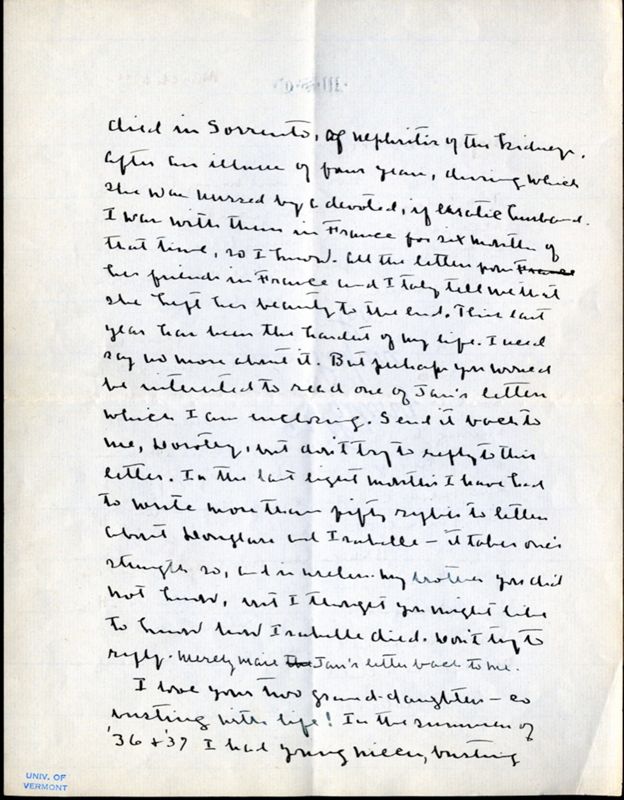 died in Sorrento, of nephritis of the kidneys.
After an illness of four years, during which
she was nursed by a devoted, if erratic husband.
I was with them in France for six months of
that time, so I know. All the letters from France
her friends in France and Italy tell me that
she kept her beauty to the end. This last
year has been the hardest of my life. I need
say no more about it. But perhaps you would
be interested to read one of Jan's letters
which I am enclosing. Send it back to
me, Dorothy, but don't try to reply to this
letter. In the last eight months I have had
to write more than fifty replies to letters
about Douglass and Isabelle – it takes one's
strength so, and is useless. My brother you did
not know, but I thought you might like
to know how Isabelle died. Don't try to
reply. Merely mail the Jan's letter back to me.
I love your two grand-daughters – so
busting with life! In the summer of
'36 & '37 I had young nieces, busting
UNIV. OF
VERMONT